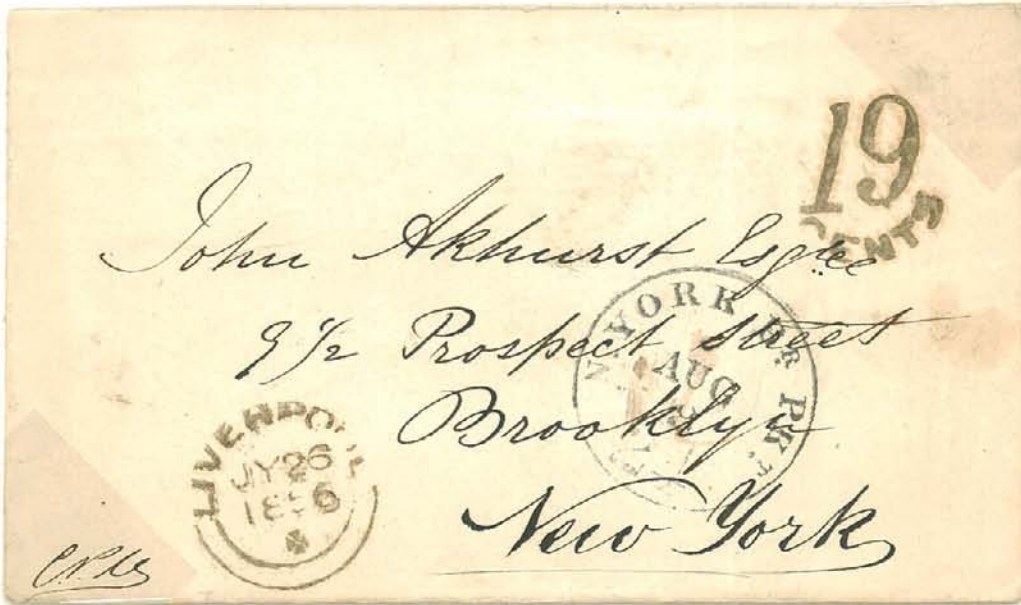 19
CENTS
John Akhurst Esqre
9 1/2 Prospect Street
Brooklyn
New York
YORK Br PKT
AUG
LIVERPOOL
JY 26